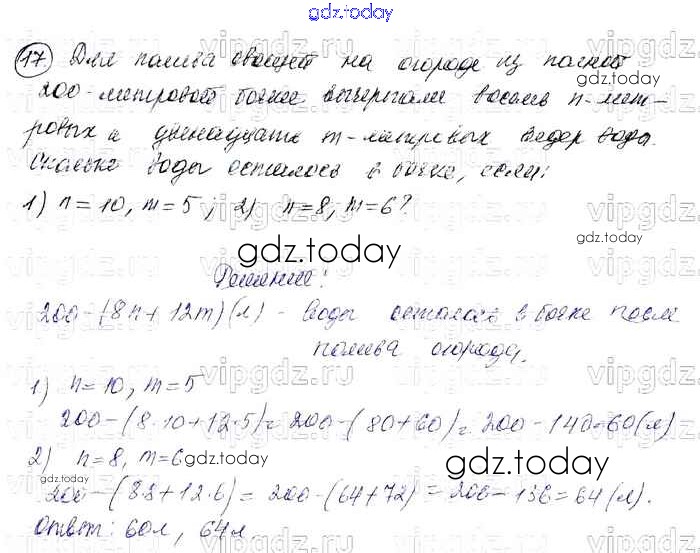 gdz.today
17) Для полива овощей на огороде из полной
gdz.today
200-литровой бочки вычерпали восемь n-лит-
ровых и двенадцать m-литровых ведер воды.
vipgdz.ru
Сколько воды осталось в бочке, если:
1) n=10, m=5; 2) n=8, m=6?
gdz.today
gdz.today
Решение:
200-(8n+12m)(л) - воды осталось в бочке после
полива огорода.
gdz.today
1) n=10, m=5
vipgdz.ru
200-(8·10+12·5)=200-(80+60)=200-140=60(л)
2) n=8, m=6
gdz.today
gdz.today
200-(8·8+12·6)=200-(64+72)=200-136=64(л).
Ответ: 60л, 64л
vipgdz.ru
gdz.today